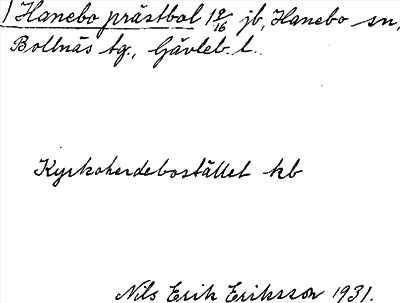 Hanebo prästbol 1 9/16 jb, Hanebo sn,
Bollnäs tg., Gävleb. l.
Kyrkoherdebostället kb
Nils Erik Eriksson 1931.